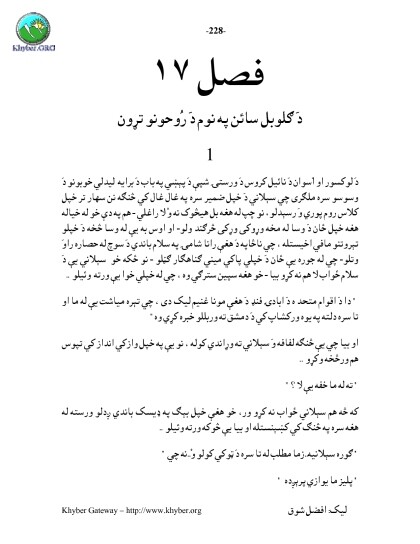 -228-
Khyber.ORG
فصل ١٧
دَ ګلوبل سائن په نوم دَ رُوحونو تړون
1
دَ لوکسور او اَسوان دَ نائیل کروس دَ ورستۍ شپې دَ پېښې په باب دَ برایه لیدلي خوبونو دَ
وسوسو سره ملګرۍ چې سېلاني دَ خپل ضمیر سره په غال غال کې څنګه نن سهار تر خپل
کلاس روم پورې وَ رسېدلو، نو چپ له هغه بل هېڅوک نه وُ لا راغلي - هم په دې خو له خیاله
هغه خپل ځان دَ وسا له مخه وړوکی وړکی څرګند ولو - او اوس به یې له وسا څخه دَ خپلو
تېروتنو مافي اخیستله، چې ناڅاپه دَ هغې رانا شامۍ په سلام باندې دَ سوچ له حصاره راوَ
وتلو - چې له جوره یې ځان دَ خپلې پاکې مینې ګناهګار ګڼلو - نو ځکه خو سېلاني یې دَ
سلام ځواب لا هم نه کړو بیا - خو هغه سپین سترګې وه، چې له خپلې خوا یې ورته ووئیلو ..
" دا دَ اقوام متحده دَ ابادۍ فنډ دَ هغې مونا غنیم لیک دی، چې تېره میاشت یې له ما او
تا سره دلته په یوه ورکشاپ کې دَ دمشق ته وربللو خبره کړې وه "
او بیا چې یې څنګه لفافه وَ سېلاني ته وړاندې کوله، نو یې په خپل وازکي انداز کې تپوس
هم ورڅخه وکړو ..
" ته له ما خفه یې لا ؟ "
که څه هم سېلاني ځواب نه کړو ور، خو هغې خپل بېګ په ډېسک باندې ږدلو ورسته له
هغه سره په څنګ کې کښېنستله او بیا یې څو که ورته وئیلو ..
" ګوره سېلانیه. زما مطلب له تا سره دَ ټوکې کولو وُ. نه چې "
" پلیز ما یوازې پرېږده "
Khyber Gateway – http://www.khyber.org
لیک: افضل شوق